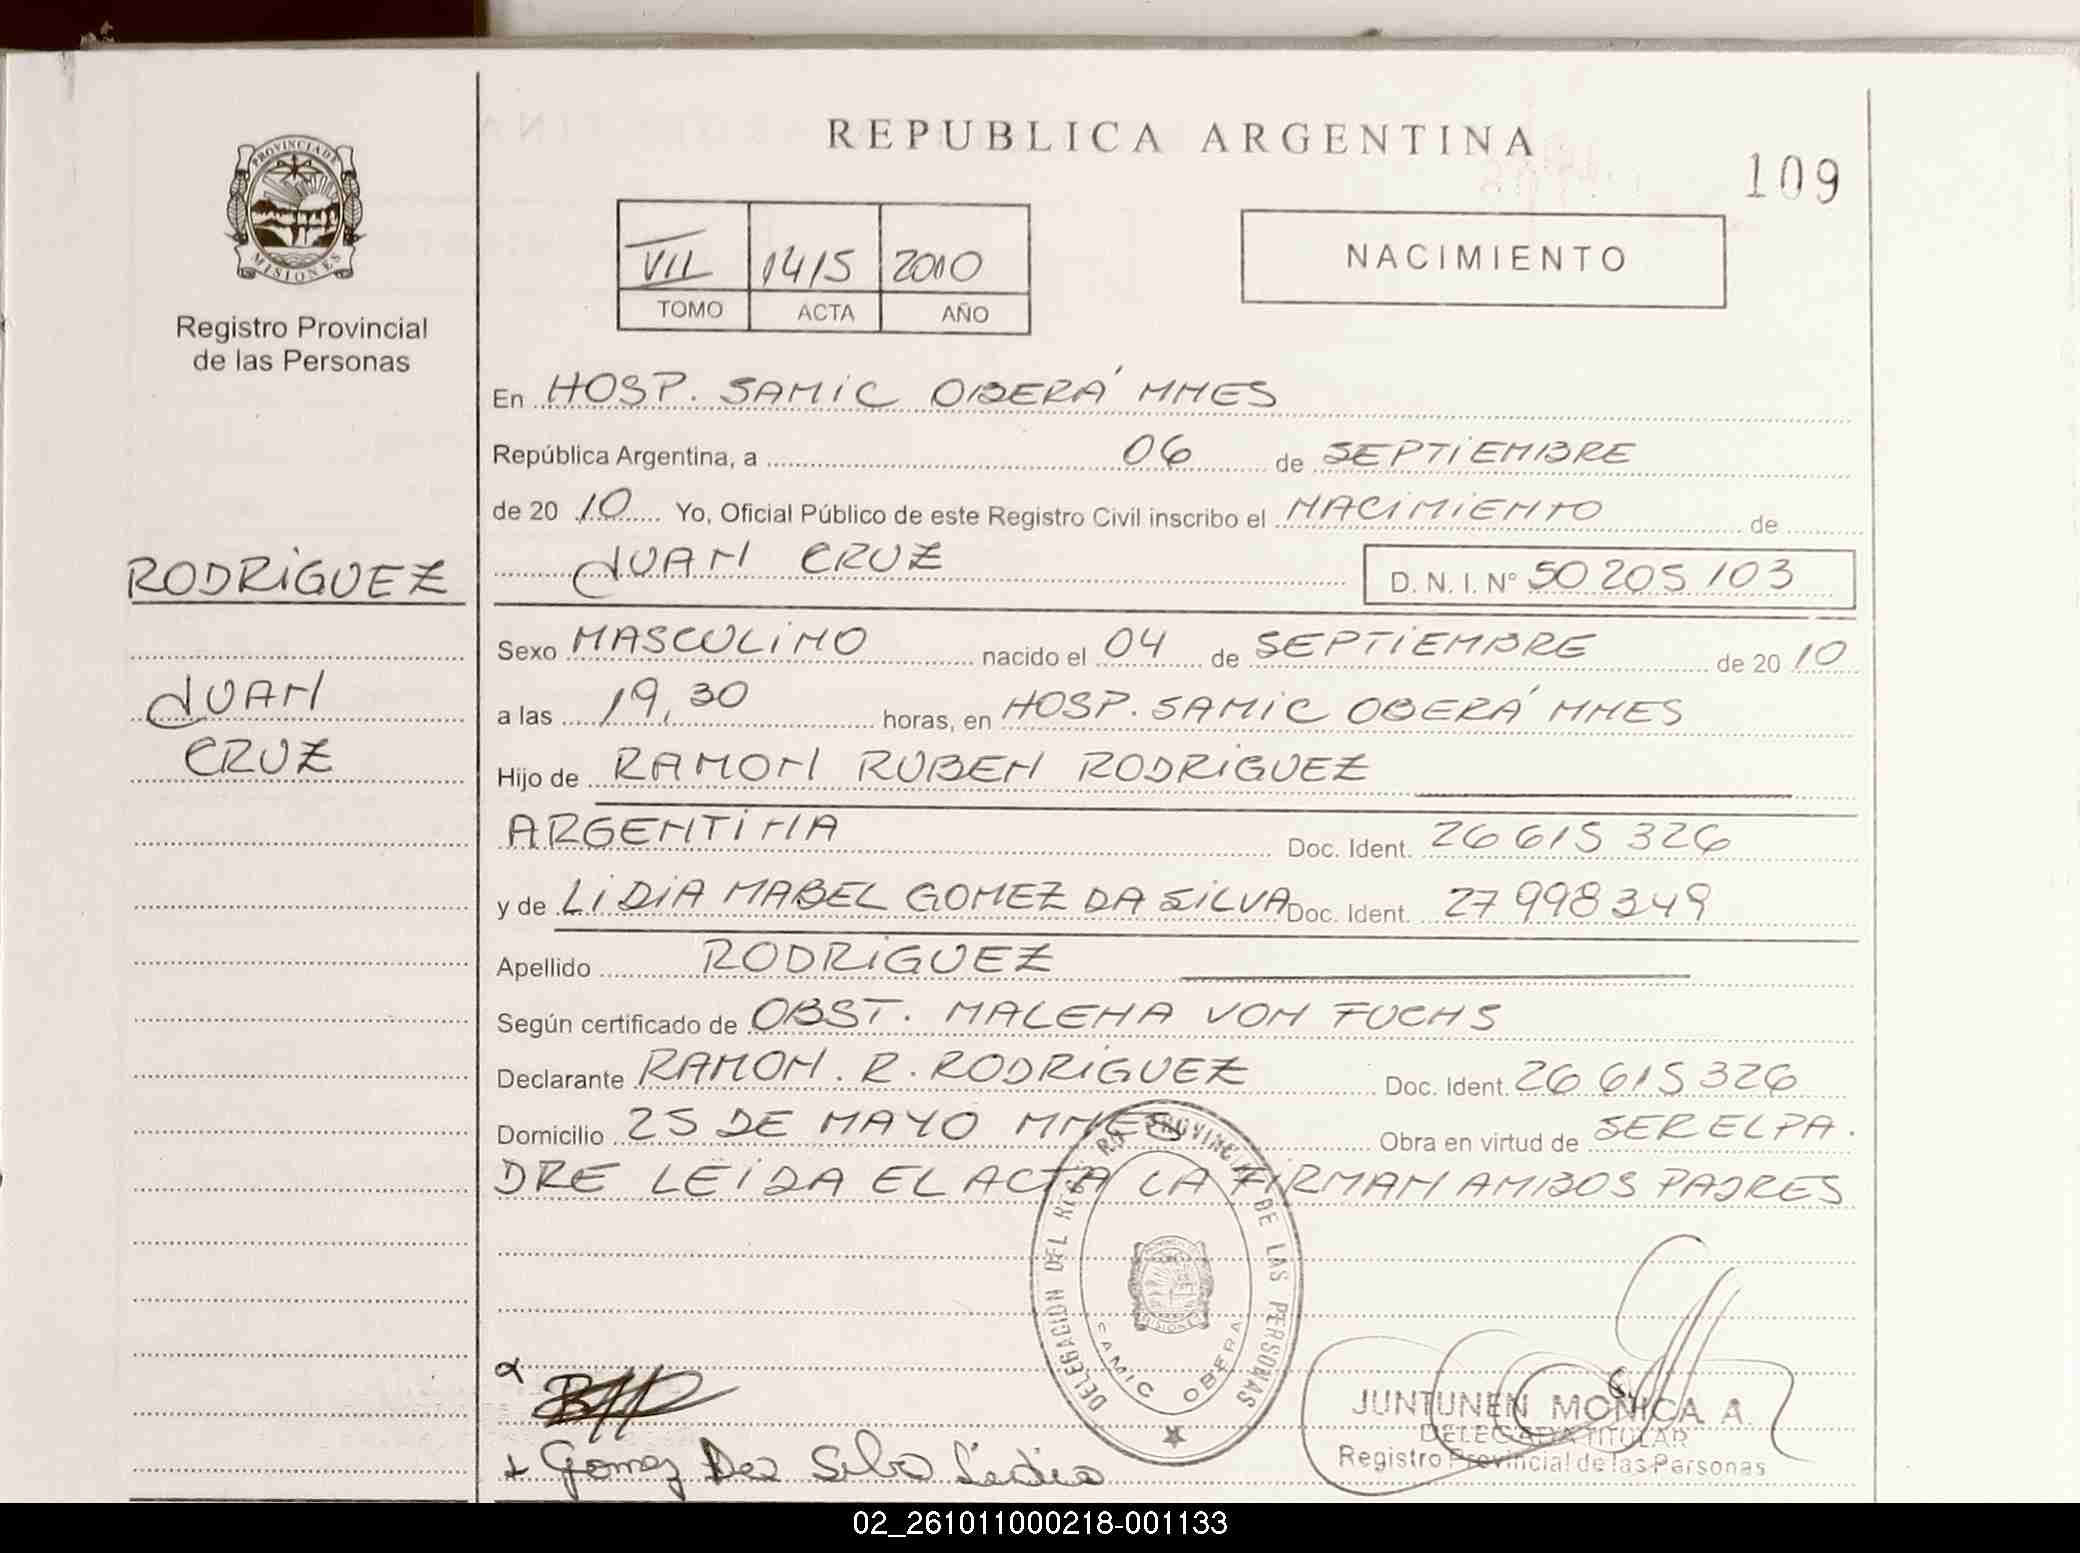 REPUBLICA ARGENTINA
109
PROVINCIA DE
MISIONES
Registro Provincial
de las Personas
VII 1415 2010
TOMO ACTA AÑO
NACIMIENTO
En HOSP. SAMIC OBERÁ MNES
República Argentina, a 06 de SEPTIEMBRE
de 20 10 Yo, Oficial Público de este Registro Civil inscribo el NACIMIENTO de
JUAN CRUZ D. N. I. N° 50 205 103
RODRIGUEZ
JUAN
CRUZ
Sexo MASCULINO nacido el 04 de SEPTIEMBRE de 20 10
a las 19,30 horas, en HOSP. SAMIC OBERÁ MNES
Hijo de RAMON RUBEN RODRIGUEZ
ARGENTINA Doc. Ident. 26 615 326
y de LIDIA MABEL GOMEZ DA SILVA Doc. Ident. 27 998 349
Apellido RODRIGUEZ
Según certificado de OBST. MALENA VON FUCHS
Declarante RAMON. R. RODRIGUEZ Doc. Ident. 26 615 326
Domicilio 25 DE MAYO MNES Obra en virtud de SER EL PA.
DRE LEIDA EL ACTA LA FIRMAN AMBOS PADRES
DELEGACION DEL REGISTRO PROVINCIAL DE LAS PERSONAS
SAMIC OBERA
MISIONES
JUNTUNEN MONICA A.
DELEGADA TITULAR
Registro Provincial de las Personas
Gomez Da Silva Lidia
02_261011000218-001133